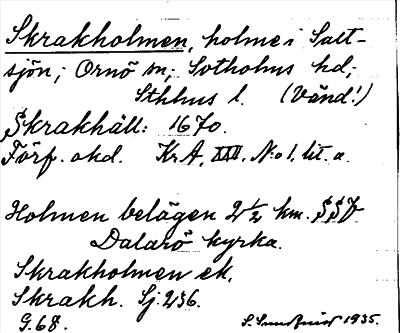 Skrakholmen, holme i Salt-
sjön; Ornö sn; Sotholms hd;
Sthlms l. (Vänd!)
Skrakhäll: 1670.
Förf. okd. KrA, XXV, No 1, lit. a.
Holmen belägen 2 1/2 km. SSV
Dalarö kyrka.
Skrakholmen ek.
Skrakh. Sj. 236.
G. 68.
1935.